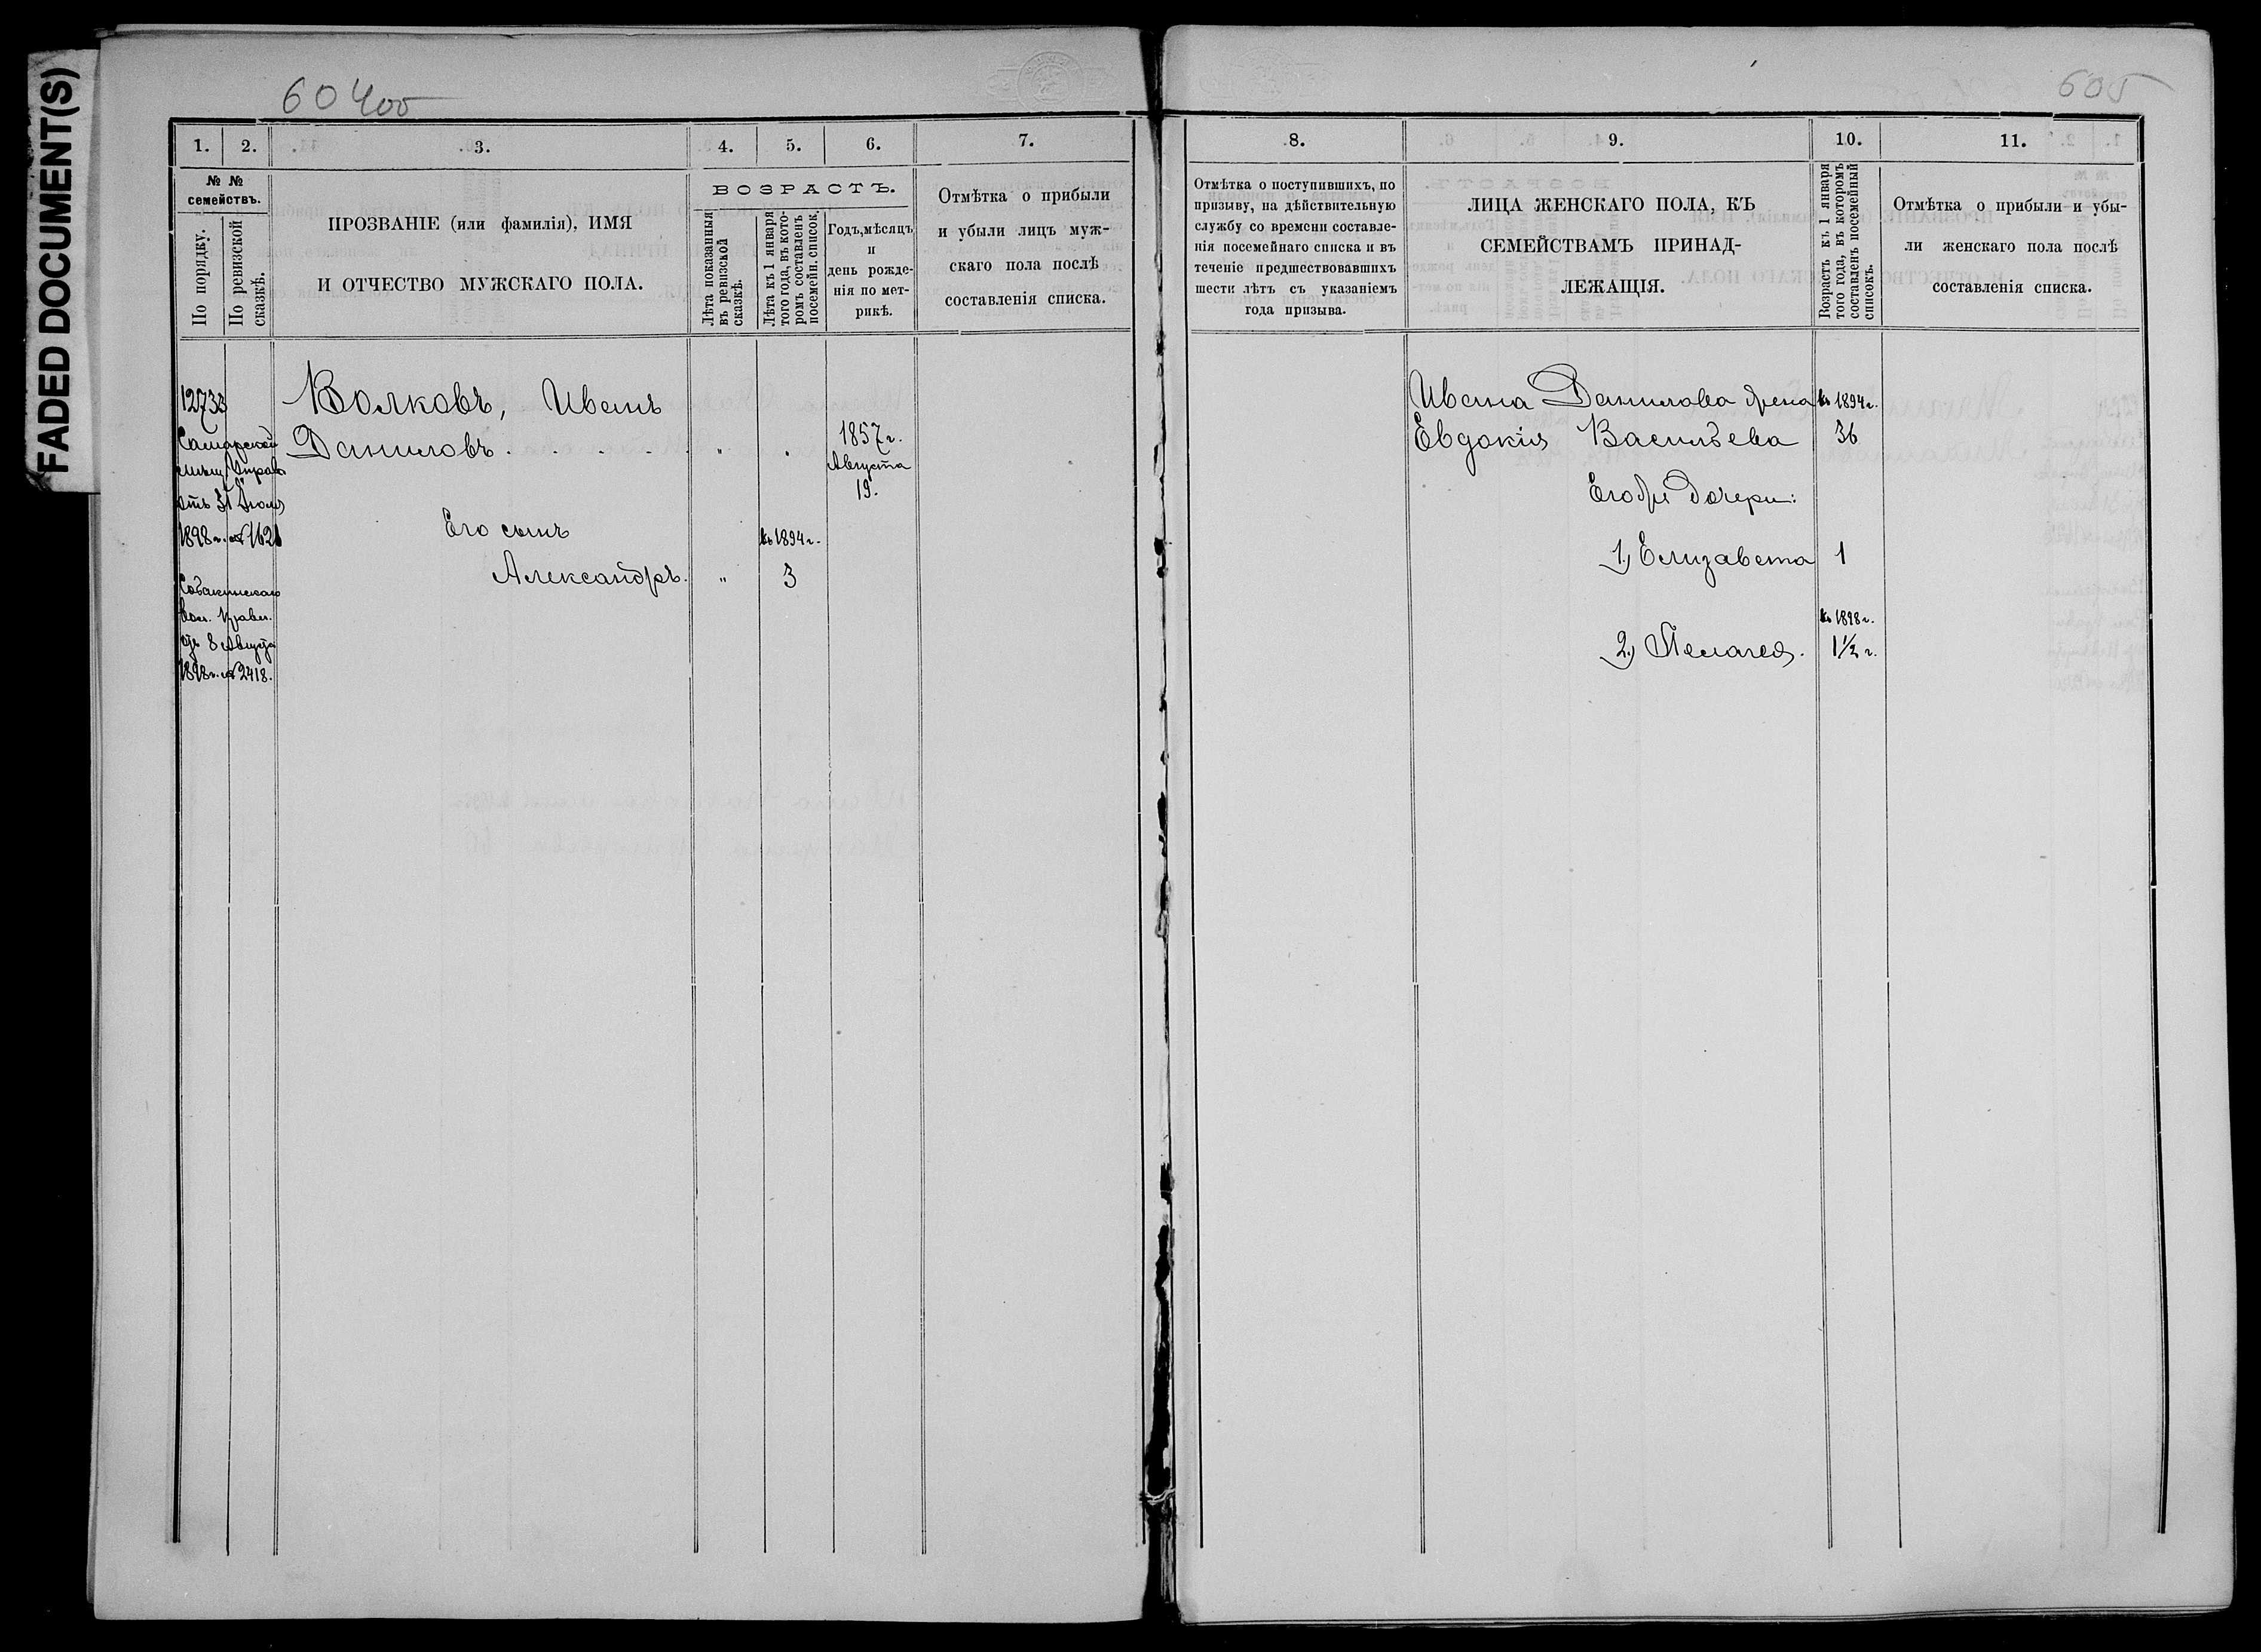 FADED DOCUMENT(S)
604об
605
1. 2. 3. 4. 5. 6. 7.
№ № семействъ.
По порядку.
По ревизской сказкѣ.
ПРОЗВАНІЕ (или фамилія), ИМЯ
И ОТЧЕСТВО МУЖСКАГО ПОЛА.
ВОЗРАСТЪ.
Лѣта показанныя
въ ревизской
сказкѣ.
Лѣта къ 1 января
того года, въ кото-
ромъ составленъ
посемейн. список.
Годъ, мѣсяцъ
и
день рожде-
нія по мет-
рикѣ.
Отмѣтка о прибыли
и убыли лицъ муж-
скаго пола послѣ
составленія списка.
8. 9. 10. 11.
Отмѣтка о поступившихъ, по
призыву, на дѣйствительную
службу со времени составле-
нія посемейнаго списка и въ
теченіе предшествовавшихъ
шести лѣтъ съ указаніемъ
года призыва.
ЛИЦА ЖЕНСКАГО ПОЛА, КЪ
СЕМЕЙСТВАМЪ ПРИНАД-
ЛЕЖАЩІЯ.
Возрастъ къ 1 января
того года, въ которомъ
составленъ посемейный
списокъ.
Отмѣтка о прибыли и убы-
ли женскаго пола послѣ
составленія списка.
12733
Самарской
мѣщ. Управы
отъ 31 Іюля
1898 г. № 1621
вол. Правл.
отъ 8 Августа
1898 г. № 2418.
Волковъ, Иванъ
Даниловъ . . . . . „ „
1857 г.
Августа
19.
Его сынъ къ 1894 г.
Александръ. „ 3
Ивана Данилова жена къ 1894 г.
Евдокія Васильева 36
Его же дочери:
1, Елизавета 1
къ 1898 г.
2, Пелагея. 1½ г.